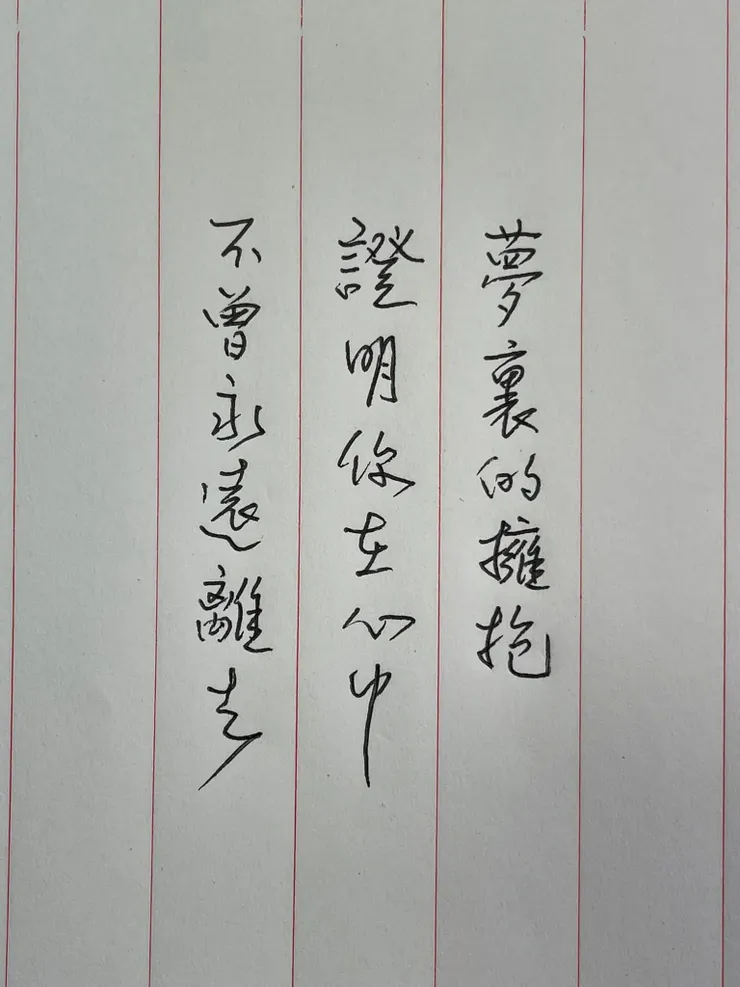 夢裏的擁抱
證明你在心中
不曾永遠離去